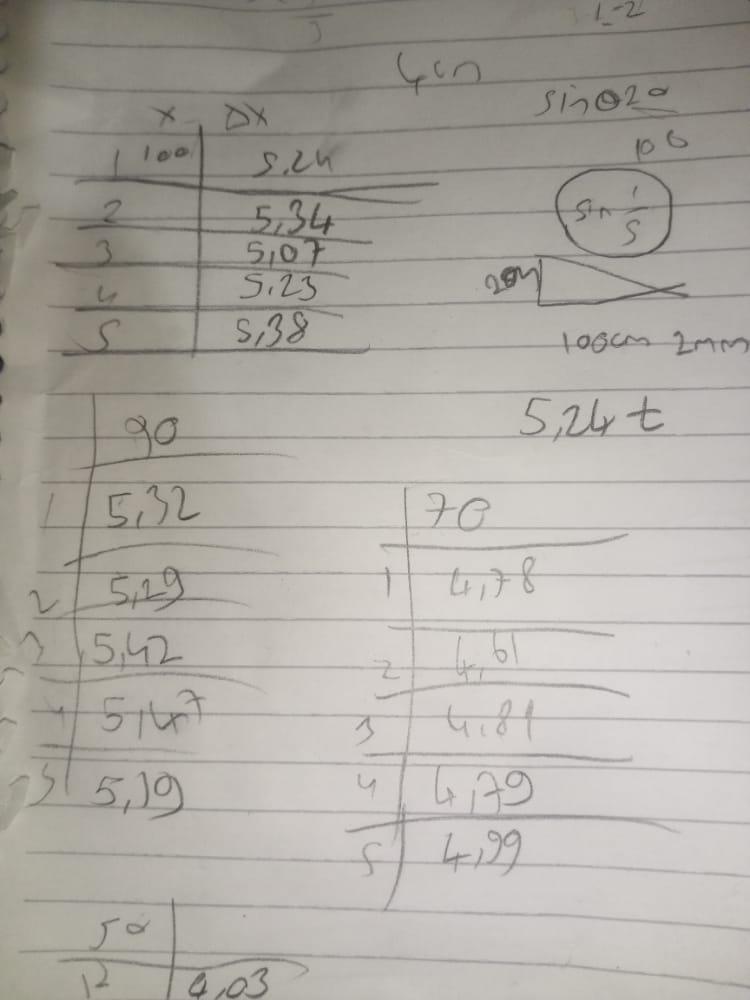 4cm
x Δx
sinθ20
100
1 100 5.24
2 5,34
sin 1/5
3 5,07
4 5.23
20m
5 5,38
100cm 2mm
90
5,24 t
1 5,32
70
2 5,29
1 4,78
3 5,42
2 4,61
4 5,47
3 4.81
5 5,19
4 4,79
5 4,99
50
4,03